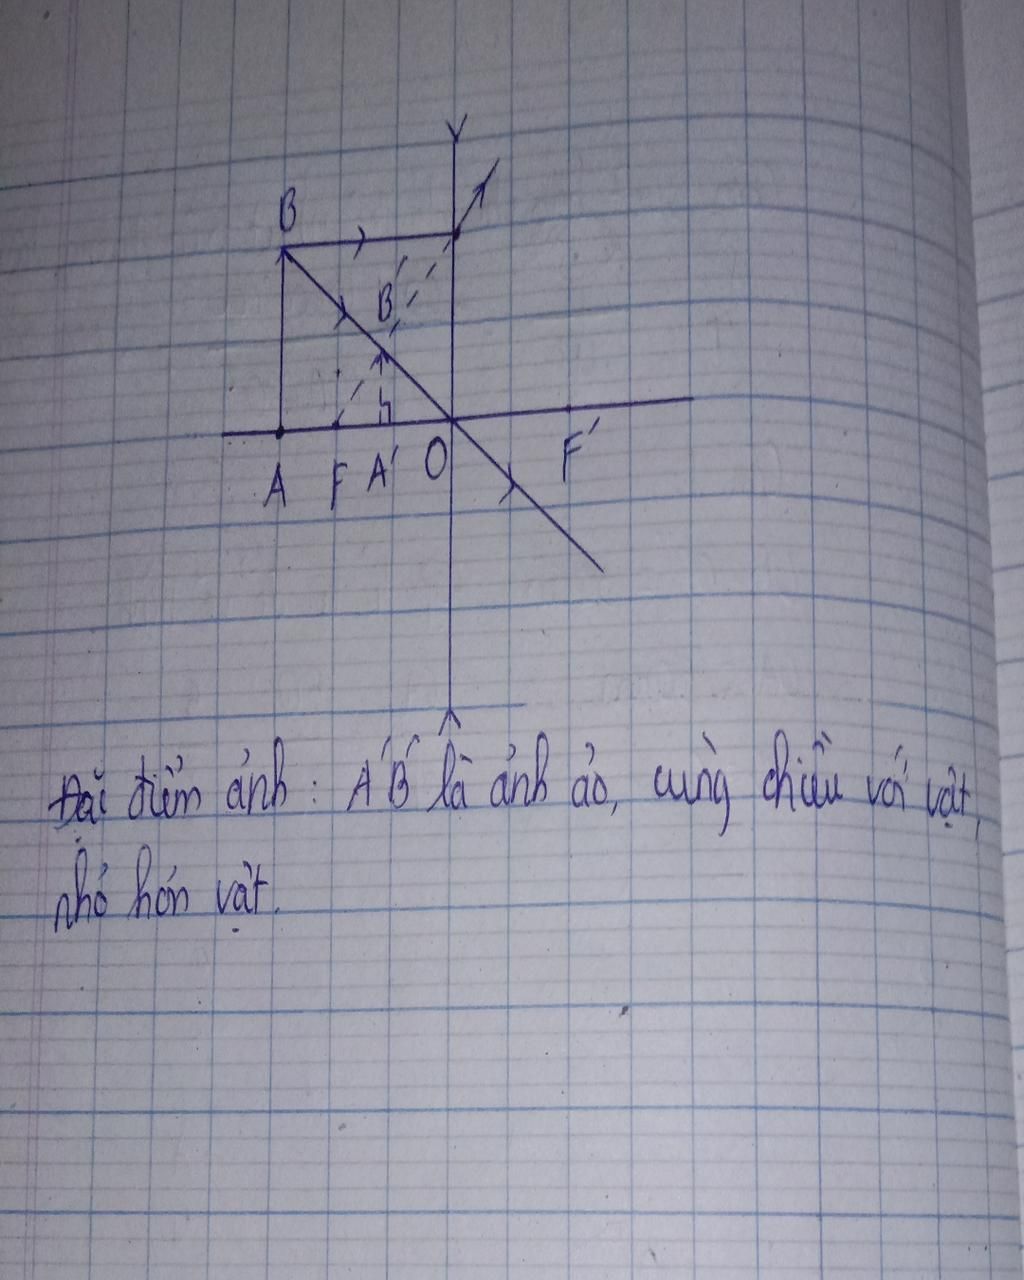 B
B'
A F A' O F'
Đặc điểm ảnh: A'B' là ảnh ảo, cùng chiều với vật,
nhỏ hơn vật.